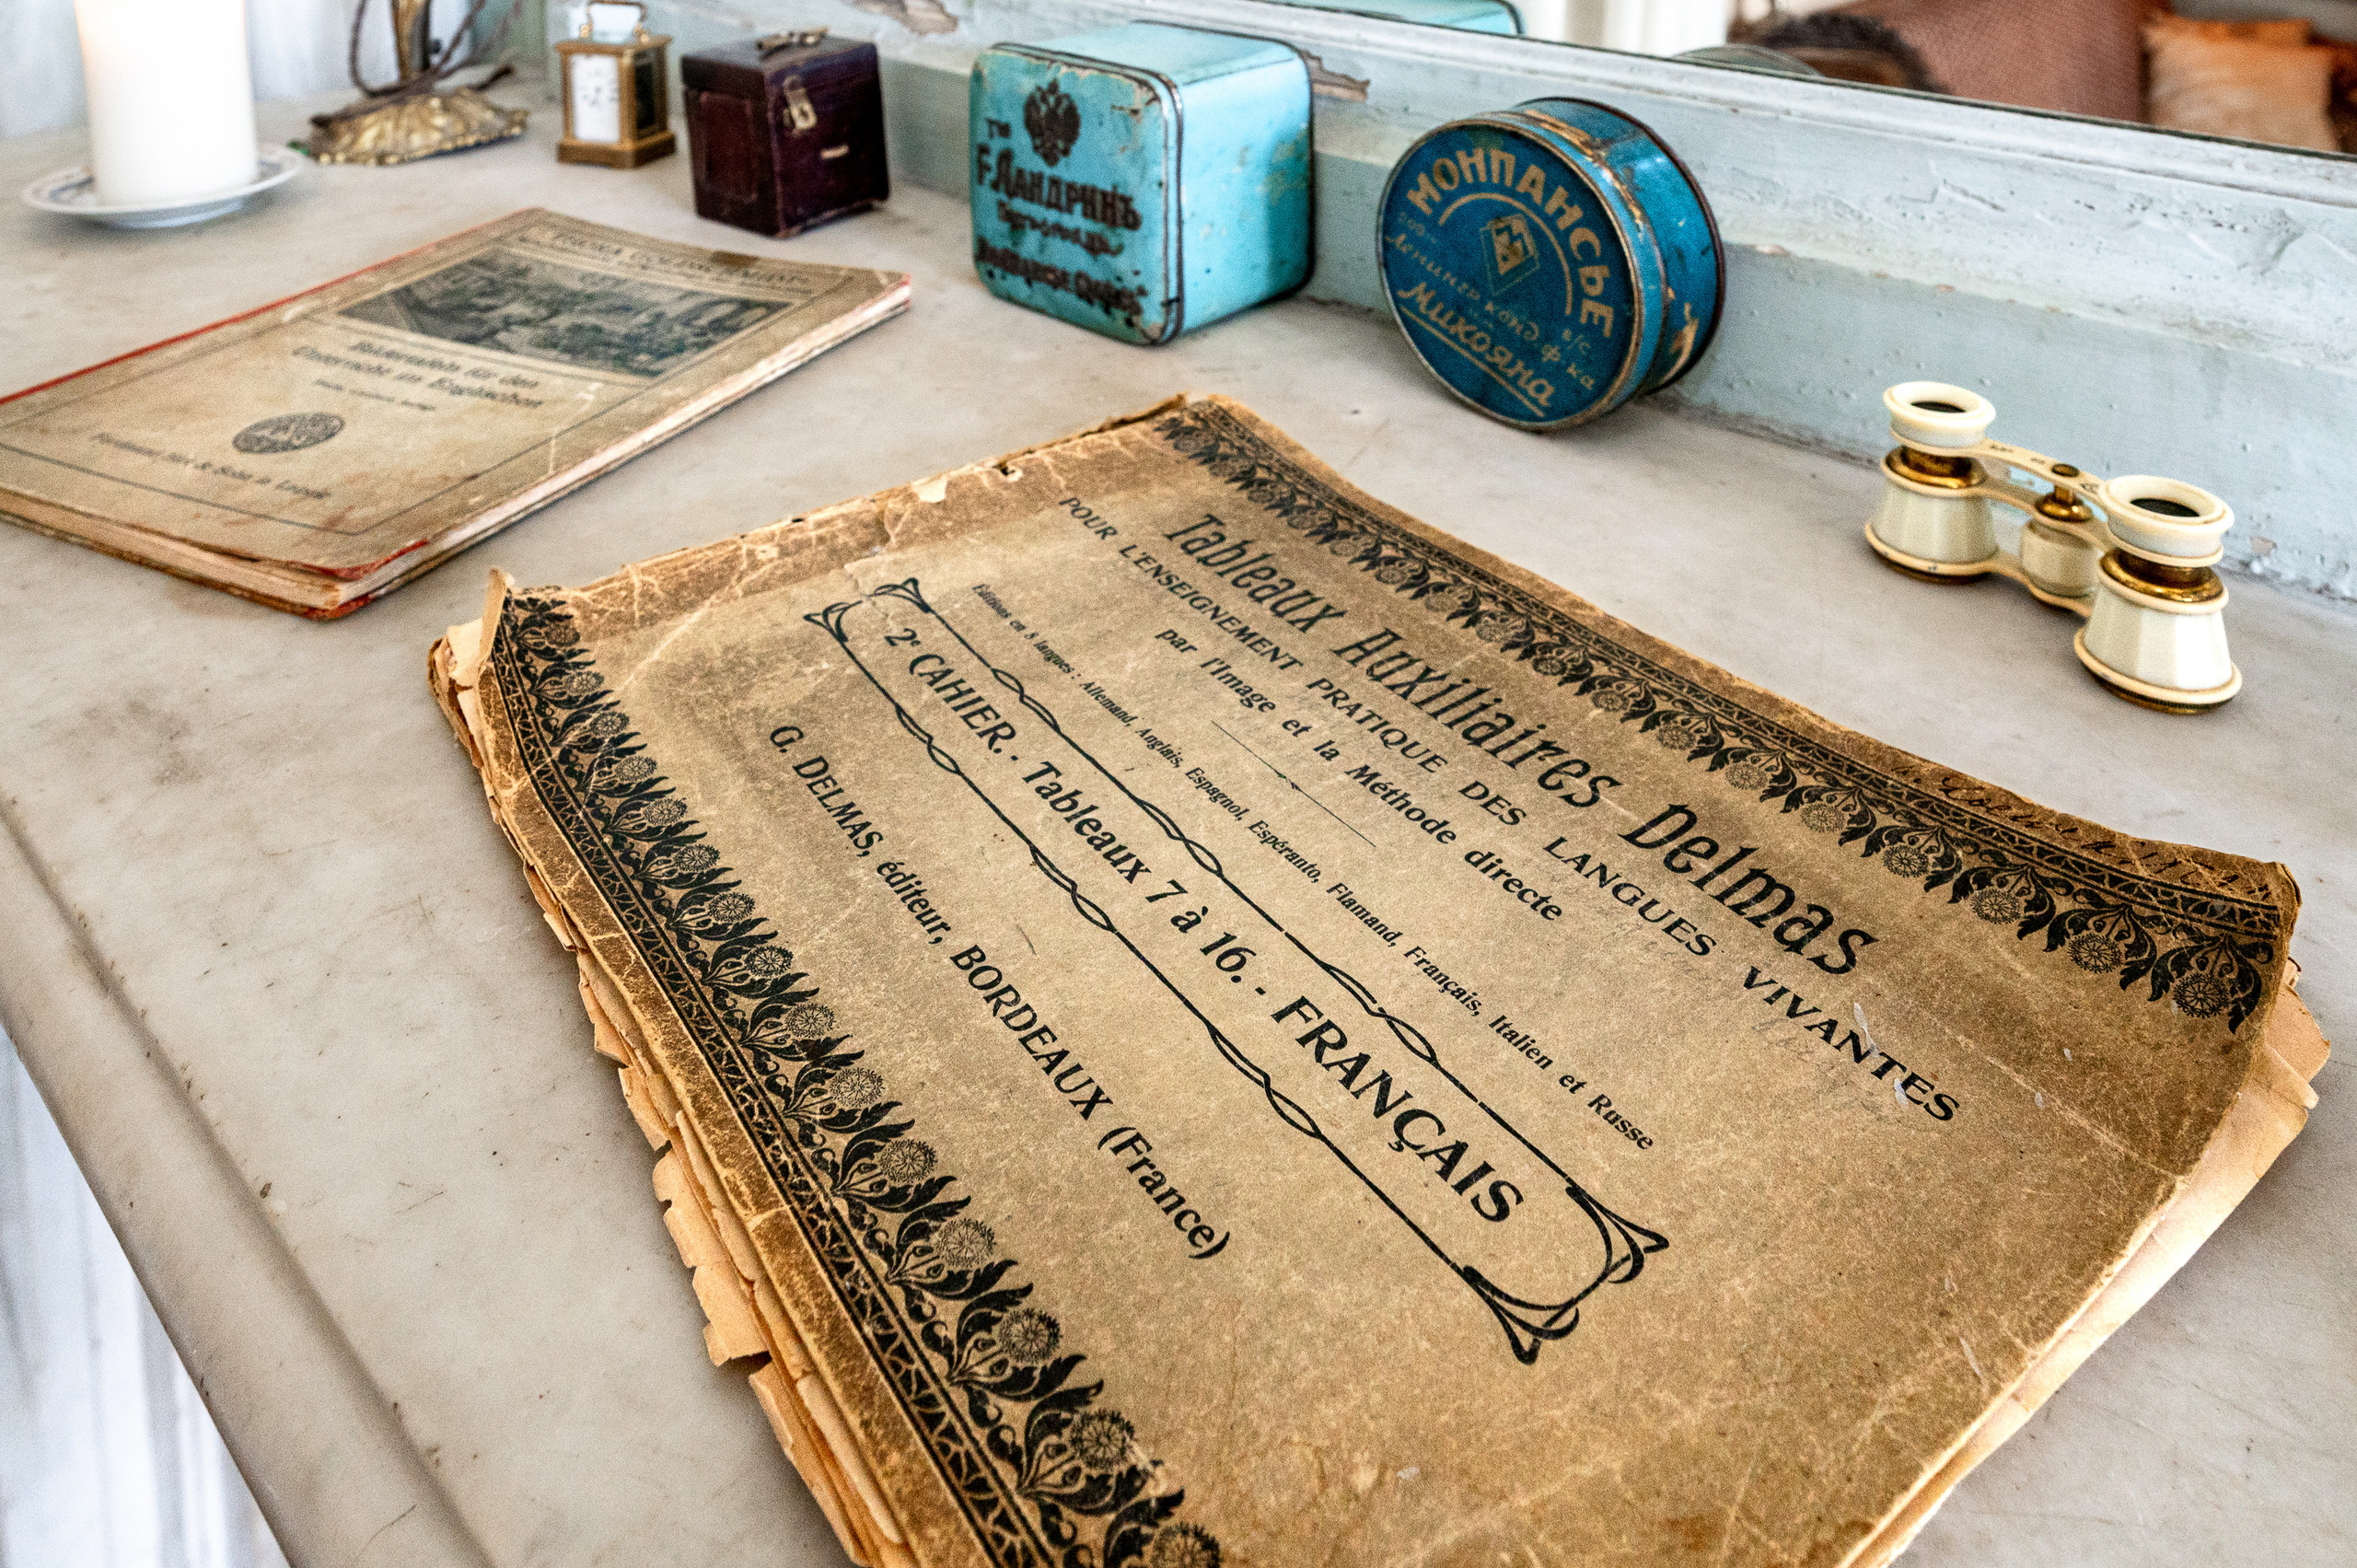 Tableaux Auxiliaires Delmas
POUR L'ENSEIGNEMENT PRATIQUE DES LANGUES VIVANTES
par l'Image et la Méthode directe
Éditions en 8 langues : Allemand, Anglais, Espagnol, Espéranto, Flamand, Français, Italien et Russe
2e CAHIER. - Tableaux 7 à 16. - FRANÇAIS
G. DELMAS, éditeur, BORDEAUX (France)
Bildertafeln für den
Unterricht im Englischen
Ferdinand Hirt & Sohn in Leipzig
Г. ЛАНДРИНЪ
МОНПАНСЬЕ
Ленингр. конд. ф-ка
Микояна